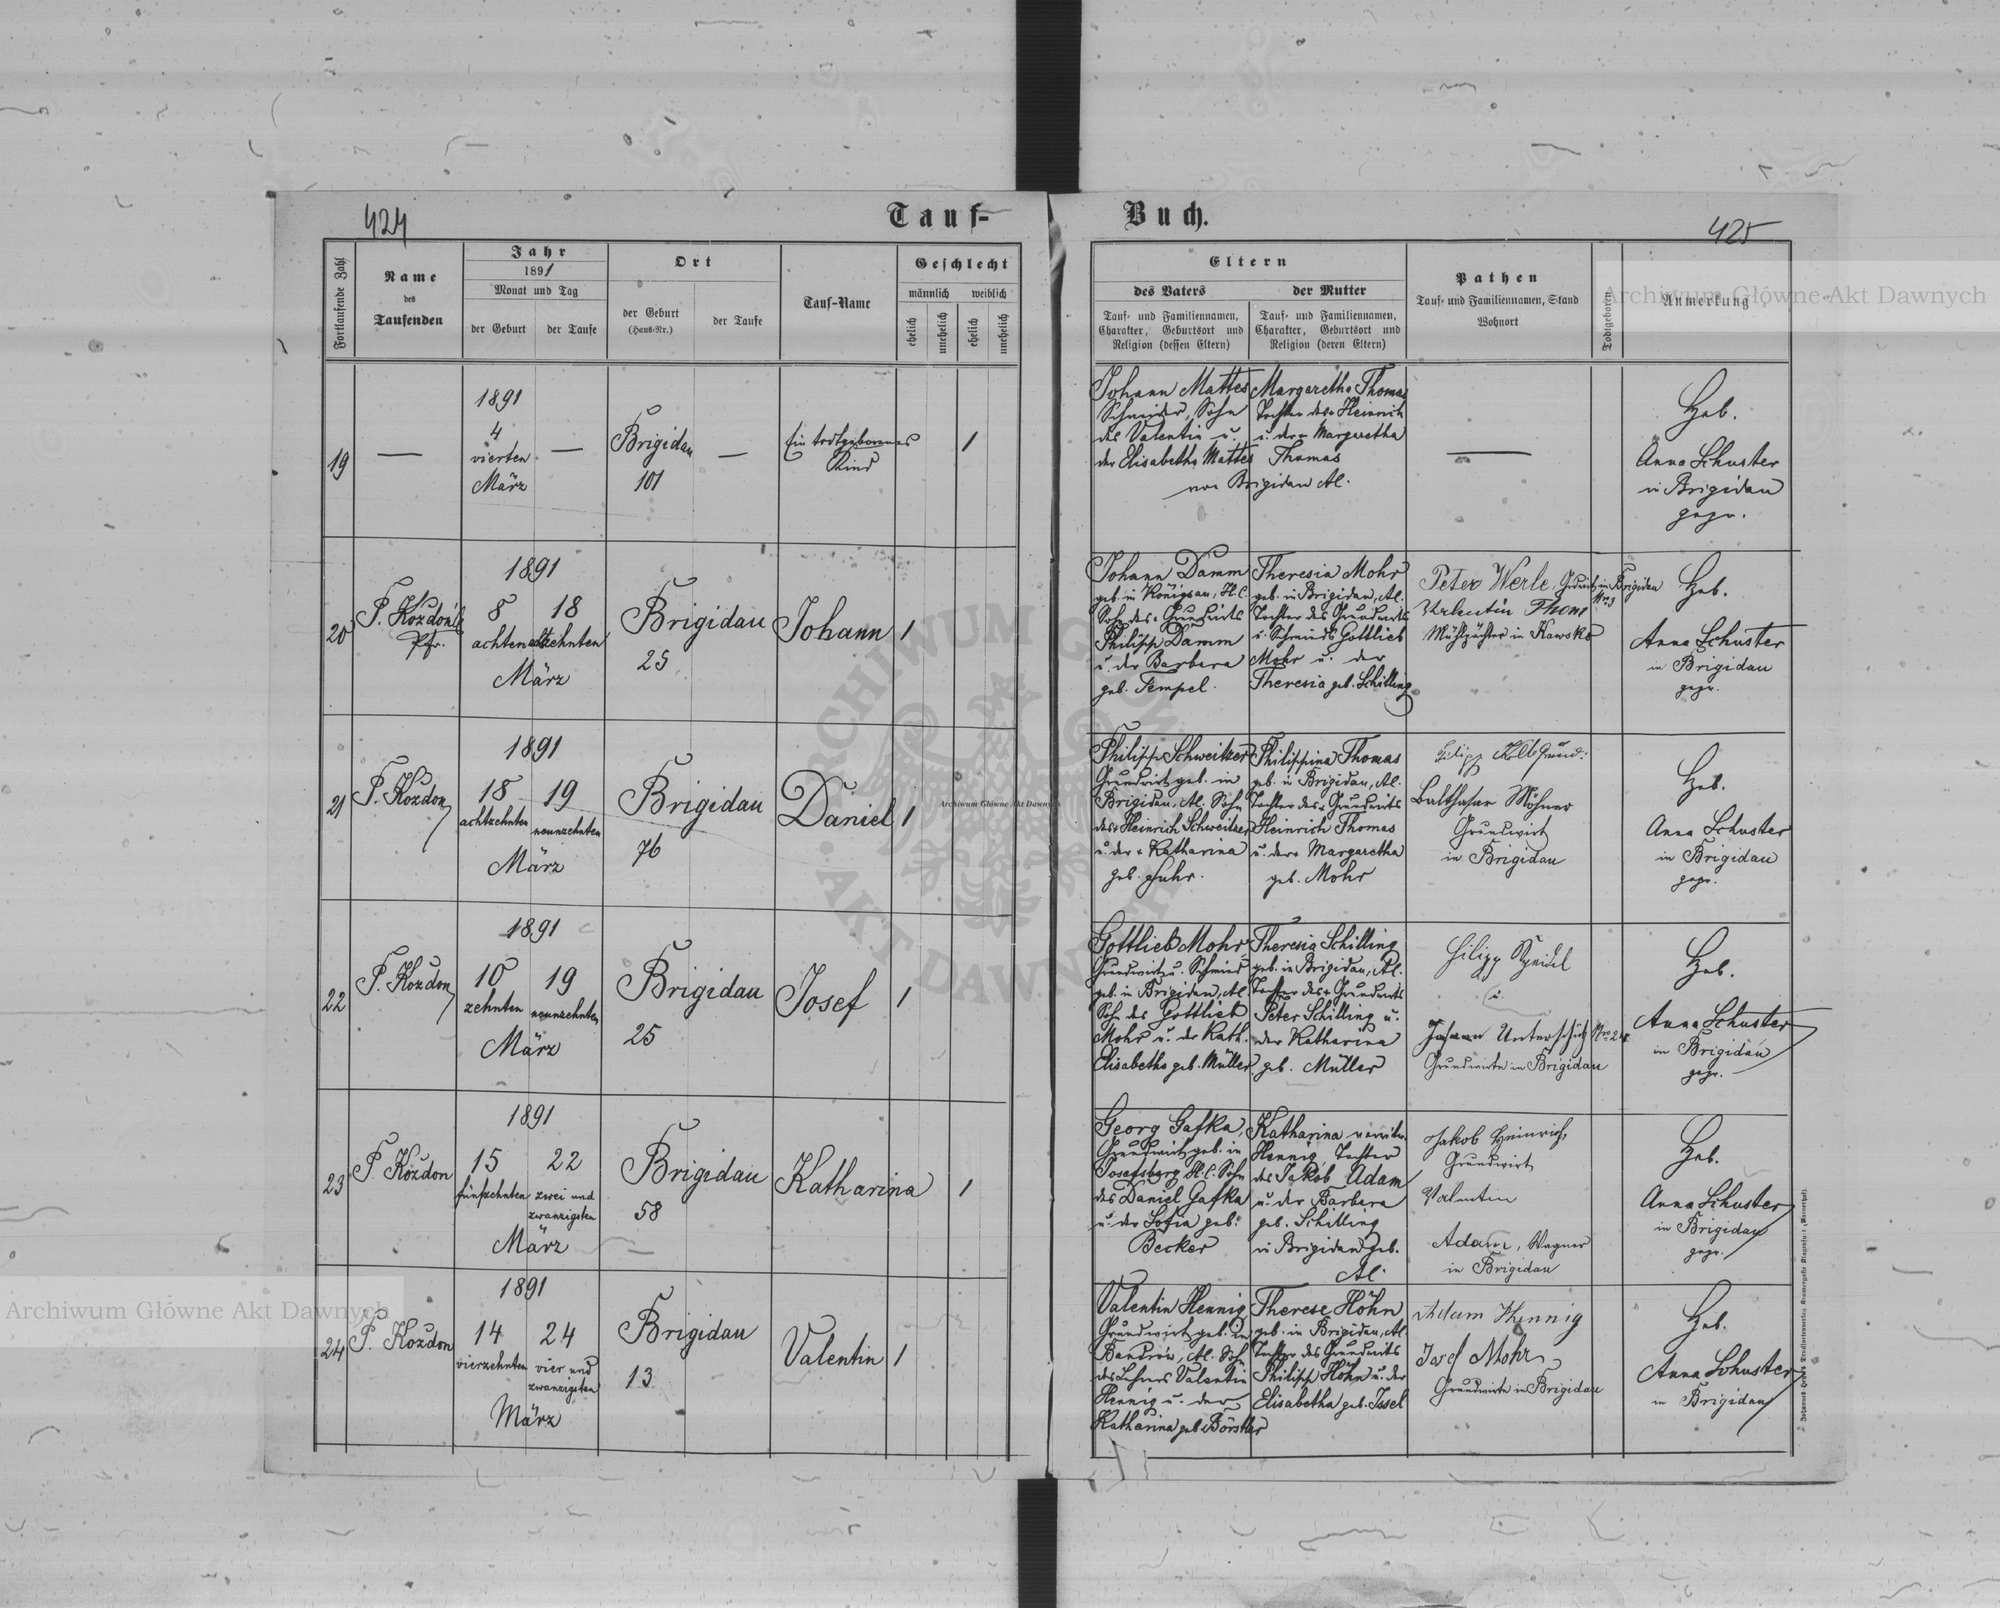 424
Tauf-
Fortlaufende Zahl
Name
des
Taufenden
Jahr
1891
Monat und Tag
der Geburt
der Taufe
Ort
der Geburt
(Haus-Nr.)
der Taufe
Tauf-Name
Geschlecht
männlich
weiblich
ehelich
unehelich
ehelich
unehelich
19
—
1891
4
vierten
März
—
Brigidau
101
—
Ein todtgeborenes
Kind
1
20
P. Kozdoń
Pfr.
1891
8
18
achten
achtzehnten
März
Brigidau
25
Johann
1
21
P. Kozdon
1891
18
19
achtzehnten
neunzehnten
März
Brigidau
76
Daniel
1
22
P. Kozdon
1891
10
19
zehnten
neunzehnten
März
Brigidau
25
Josef
1
23
P. Kozdon
1891
15
22
fünfzehnten
zwei und
zwanzigsten
März
Brigidau
58
Katharina
1
24
P. Kozdon
1891
14
24
vierzehnten
vier und
zwanzigsten
März
Brigidau
13
Valentin
1
Buch.
425
Eltern
des Vaters
der Mutter
Tauf- und Familiennamen,
Charakter, Geburtsort und
Religion (dessen Eltern)
Tauf- und Familiennamen,
Charakter, Geburtsort und
Religion (deren Eltern)
Pathen
Tauf- und Familiennamen, Stand
Wohnort
Todtgeboren
Anmerkung
Johann Mattes
Schneider, Sohn
des Valentin u.
der Elisabetha Mattes
Margaretha Thomas
Tochter des Heinrich
u. der Margaretha
Thomas
von Brigidau Al.
—
Heb.
Anna Schuster
in Brigidau
gepr.
Johann Damm
geb. in Königsau, H.C.
Sohn des Grundwirts
Philipp Damm
u. der Barbara
geb. Tempel.
Theresia Mohr
geb. in Brigidau, Al.
Tochter des Grundwirts
u. Schmieds Gottlieb
Mohr u. der
Theresia geb. Schilling
Peter Werle, Grundw. in Brigidau
Valentin Thom
Mühlpächter in Kawsko
Heb.
Anna Schuster
in Brigidau
gepr.
Philipp Schweitzer
Grundwirt geb. in
Brigidau, Al. Sohn
des Heinrich Schweitzer
u. der Katharina
geb. Fuhr.
Philippina Thomas
geb. in Brigidau, Al.
Tochter des Grundwirts
Heinrich Thomas
u. der Margaretha
geb. Mohr
Filipp Kolb Grund.
Balthasar Möhner
Grundwirt
in Brigidau
Heb.
Anna Schuster
in Brigidau
gepr.
Gottlieb Mohr,
Grundwirt u. Schmied
geb. in Brigidau, Al.
Sohn des Gottlieb
Mohr u. der Kath.
Elisabetha geb. Müller
Theresia Schilling
geb. in Brigidau, Al.
Tochter des Grundwirts
Peter Schilling u.
der Katharina
geb. Müller
Filipp Speidel
u.
Johann Unterschütz Nro 24
Grundwirte in Brigidau
Heb.
Anna Schuster
in Brigidau
gepr.
Georg Gafka,
Grundwirt geb. in
Josefsberg H.C. Sohn
des Daniel Gafka
u. der Sofia geb.
Becker
Katharina verwitw.
Hennig Tochter
des Jakob Adam
u. der Barbara
geb. Schilling
in Brigidau geb.
Al.
Jakob Heinrich
Grundwirt
Valentin
Adam, Wagner
in Brigidau
Heb.
Anna Schuster
in Brigidau
gepr.
Valentin Hennig
Grundwirt geb. in
Bandrów, Al. Sohn
des Lehrers Valentin
Hennig u. der
Katharina geb. Börstler
Therese Höhn
geb. in Brigidau, Al.
Tochter des Grundwirts
Philipp Höhn u. der
Elisabetha geb. Issel
Adam Hennig
Josef Mohr
Grundwirte in Brigidau
Heb.
Anna Schuster
in Brigidau
Archiwum Główne Akt Dawnych
Archiwum Główne Akt Dawnych
Archiwum Główne Akt Dawnych
ARCHIWUM GŁÓWNE
AKT DAWNYCH